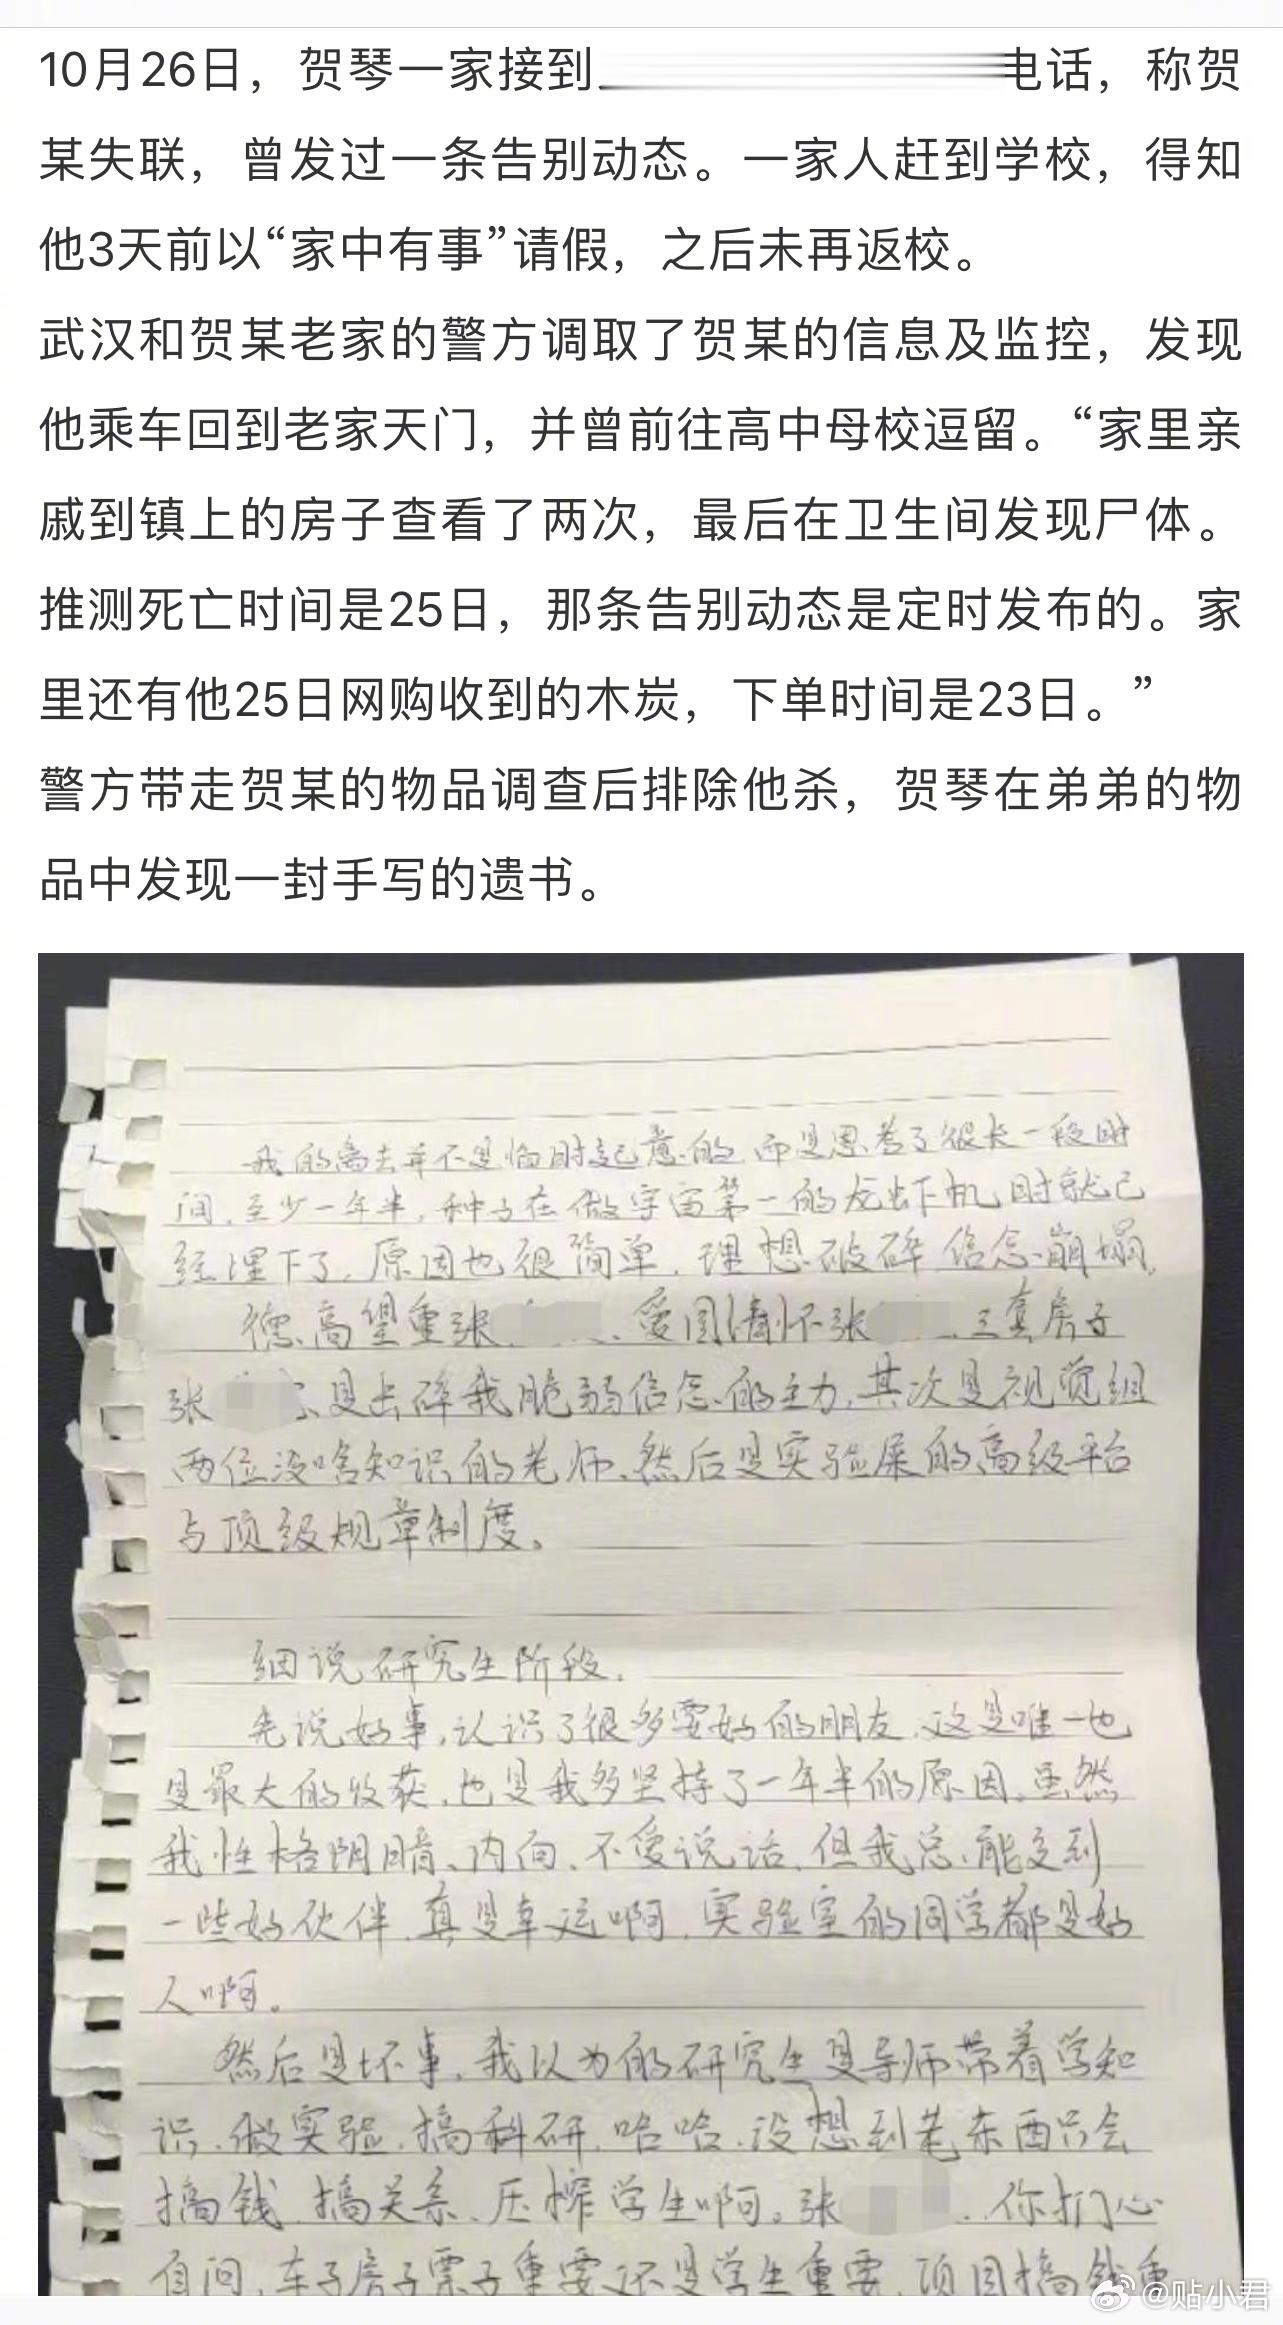 10月26日，贺琴一家接到 电话，称贺
某失联，曾发过一条告别动态。一家人赶到学校，得知
他3天前以“家中有事”请假，之后未再返校。
武汉和贺某老家的警方调取了贺某的信息及监控，发现
他乘车回到老家天门，并曾前往高中母校逗留。“家里亲
戚到镇上的房子查看了两次，最后在卫生间发现尸体。
推测死亡时间是25日，那条告别动态是定时发布的。家
里还有他25日网购收到的木炭，下单时间是23日。”
警方带走贺某的物品调查后排除他杀，贺琴在弟弟的物
品中发现一封手写的遗书。
我的离去并不是临时起意的，而是思考了很长一段时
间，至少一年半，种子在做宇宙第一的龙虾机时就已
经埋下了，原因也很简单，理想破碎，信念崩塌，
德高望重张 、爱国情怀张 、三套房子
张 是击碎我脆弱信念的主力，其次是视觉组
两位没啥知识的老师、然后是实验屎的高级平台
与顶级规章制度。
细说研究生阶段，
先说好事，认识了很多要好的朋友，这是唯一也
是最大的收获，也是我多坚持了一年半的原因。虽然
我性格阴暗、内向、不爱说话，但我总能交到
一些好伙伴，真是幸运啊，实验室的同学都是好
人啊。
然后是坏事，我以为的研究生是导师带着学知
识、做实验、搞科研，哈哈，没想到老东西只会
搞钱、搞关系、压榨学生啊。张 ，你扪心
自问，车子房子票子重要还是学生重要，项目搞钱重
@贴小君